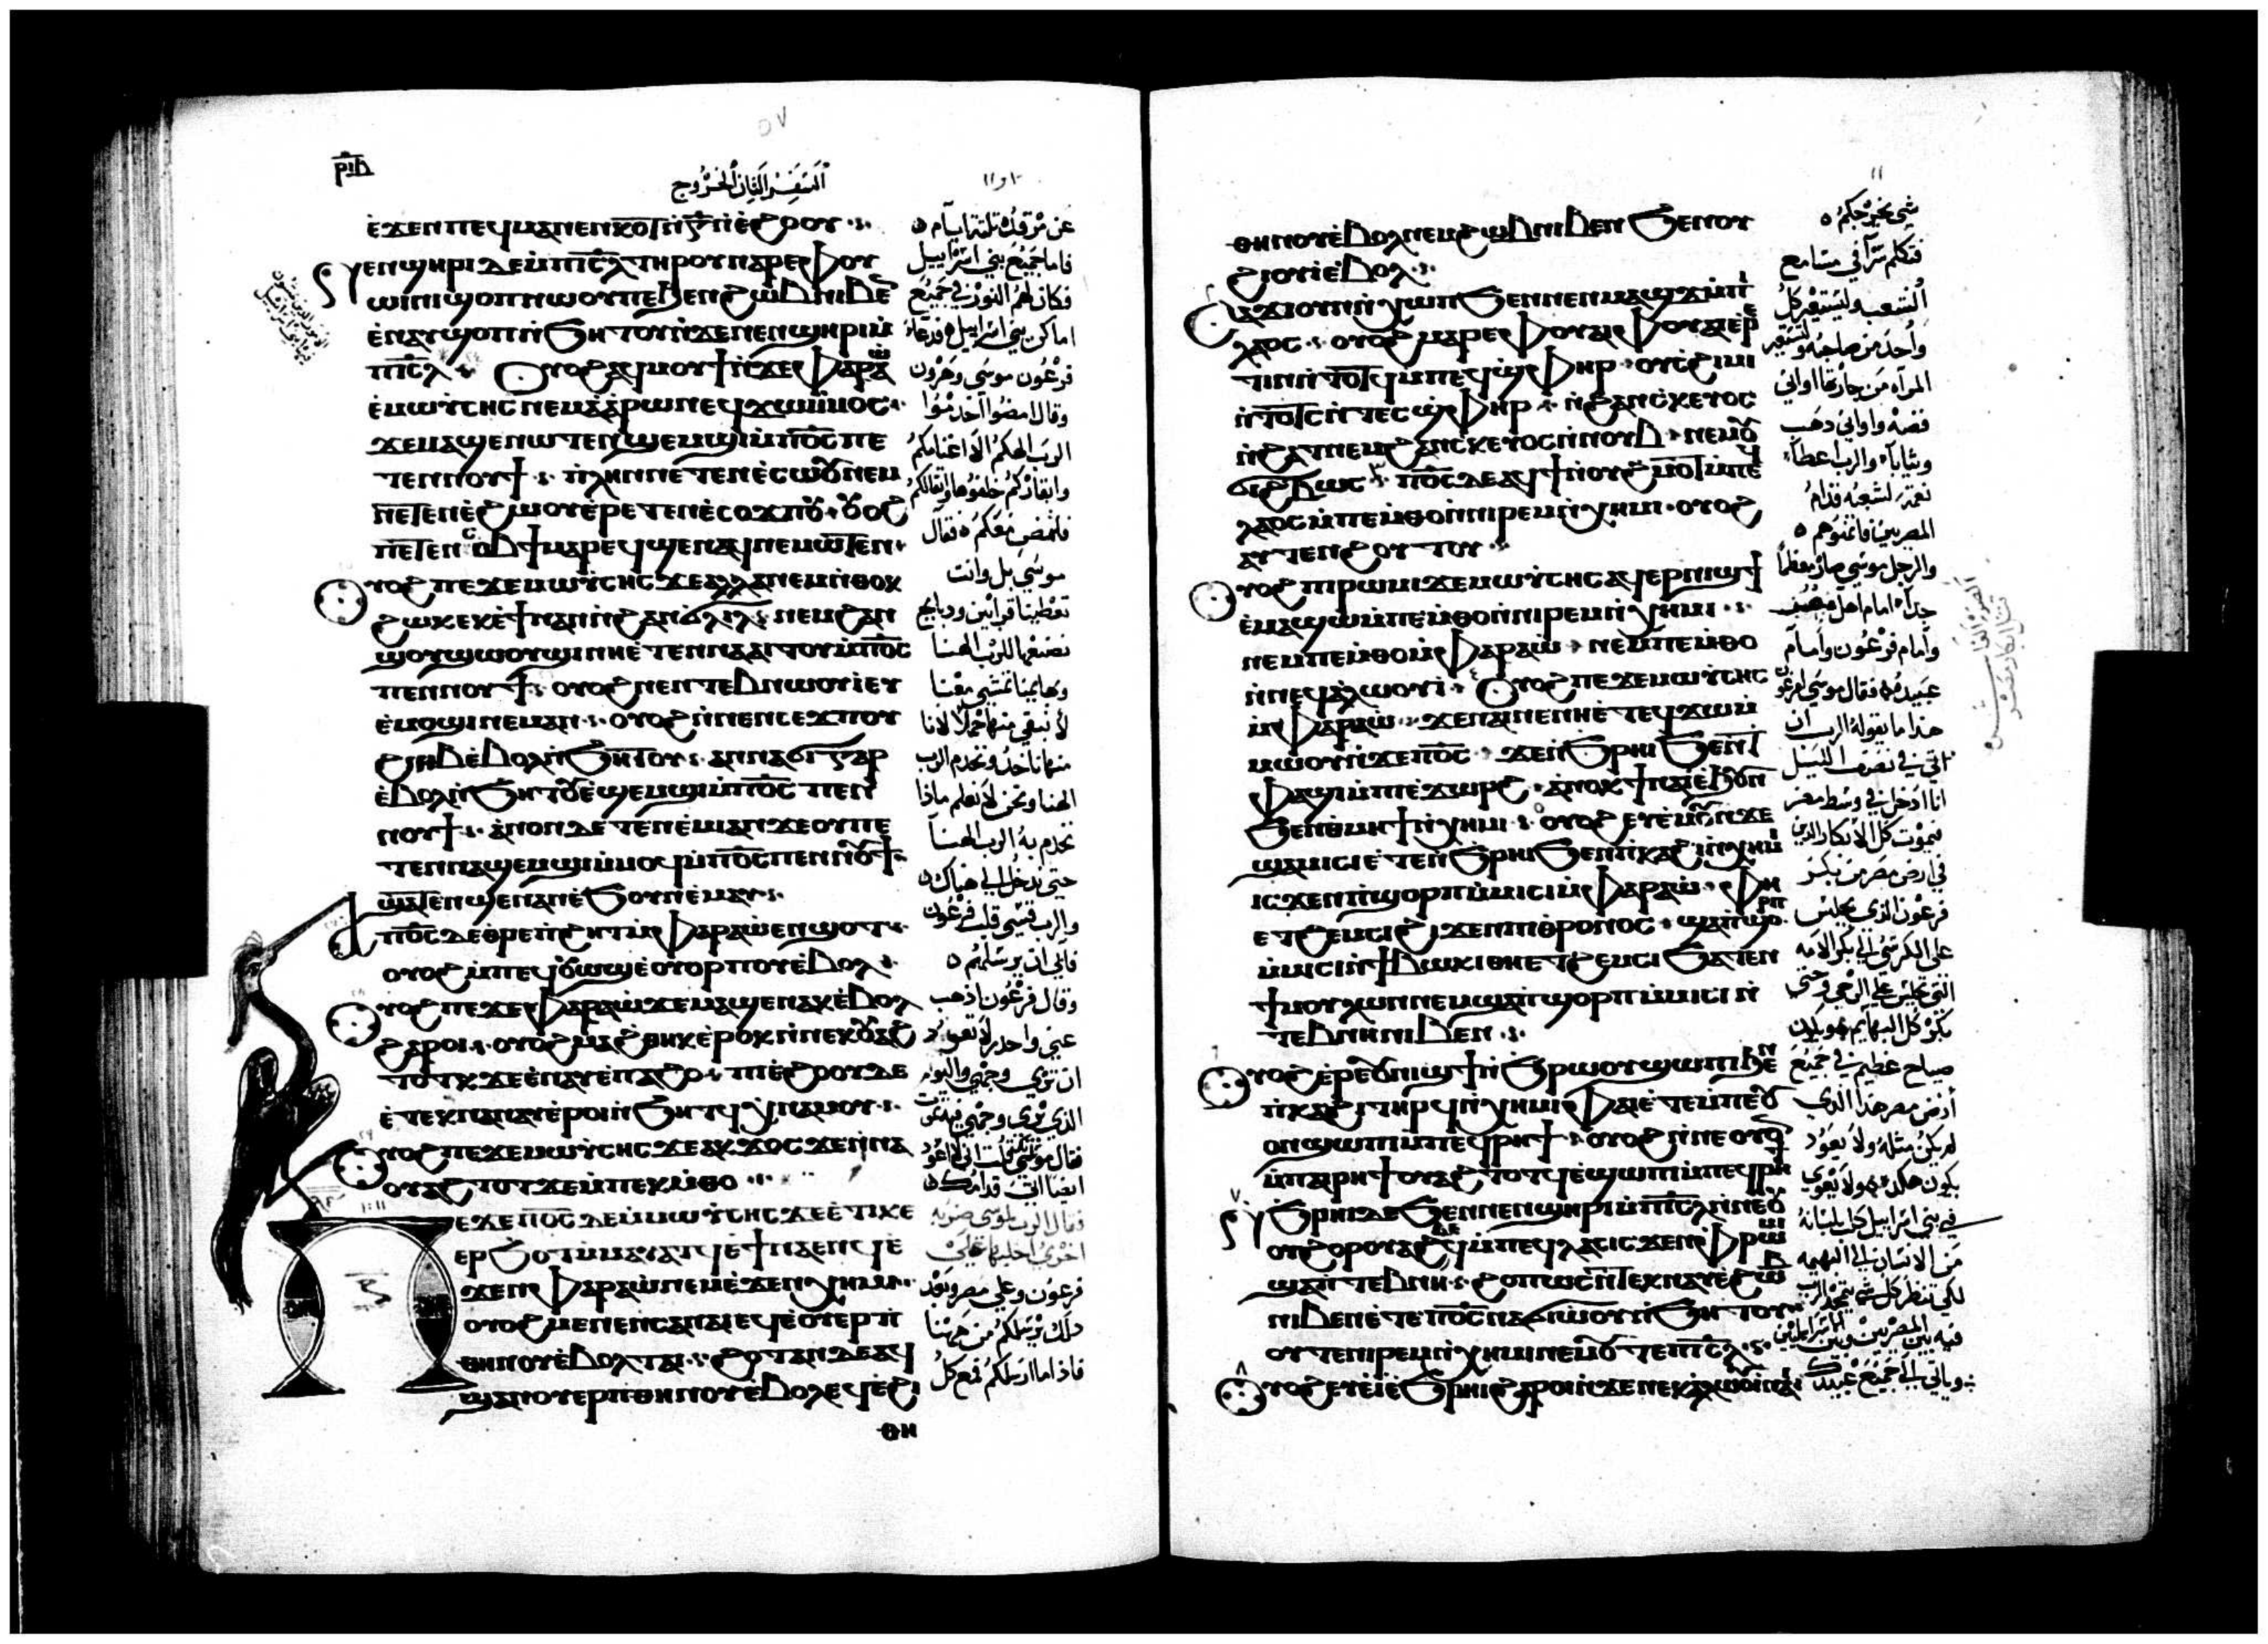 ⲣⲓⲃ
٥٧
السفر الثاني الخروج
١٠ و ١١
ⲉ̀ϫⲉⲛ ⲡⲉϥⲙⲁⲛⲉⲛⲕⲟⲧ ⲛ̀ⲅ̅ ⲛ̀ⲉ̀ϩⲟⲟⲩ
ⲛⲉⲛϣⲏⲣⲓ ⲇⲉ ⲙ̀ⲡⲓⲥ̅ⲗ̅ ⲧⲏⲣⲟⲩ ⲛⲁⲣⲉ ⲫⲟⲩ
ⲱⲓⲛⲓ ϣⲟⲡ ⲛⲱⲟⲩ ⲡⲉ ϧⲉⲛ ϩⲱⲃ ⲛⲓⲃⲉⲛ
ⲉ̀ⲛⲁⲩϣⲟⲡ ⲛ̀ϧⲏⲧⲟⲩ ⲛ̀ϫⲉ ⲛⲉⲛϣⲏⲣⲓ ⲙ̀
ⲡⲓⲥ̅ⲗ̅ ⲟⲩⲟϩ ⲁϥⲙⲟⲩϯ ⲛ̀ϫⲉ ⲫⲁⲣⲁⲱ
ⲉ̀ⲙⲱⲩⲥⲏⲥ ⲛⲉⲙ ⲁ̀ⲁ̀ⲣⲱⲛ ⲉϥϫⲱ ⲙ̀ⲙⲟⲥ
ϫⲉ ⲙⲁϣⲉⲛⲱⲧⲉⲛ ϣⲉⲙϣⲓ ⲙ̀ⲡ⳪ ⲡⲉ
ⲧⲉⲛⲛⲟⲩϯ ⲡⲗⲏⲛ ⲛⲉⲧⲉⲛⲉ̀ⲥⲱⲟⲩ ⲛⲉⲙ
ⲛⲉⲧⲉⲛⲉ̀ϩⲱⲟⲩ ⲉ̀ⲣⲉⲧⲉⲛⲉ̀ⲥⲟϫⲡⲟⲩ ⲟⲩⲟϩ
ⲟⲩⲟϩ ⲡⲉϫⲉ ⲙⲱⲩⲥⲏⲥ ϫⲉ ⲁⲗⲗⲁ ⲛⲉⲙ ⲛ̀ⲑⲟⲕ
ϩⲱⲕ ⲉⲕⲉ̀ϯ ⲛⲁⲛ ⲛ̀ϩⲁⲛϭⲗⲓⲗ ⲛⲉⲙ ϩⲁⲛ
ϣⲟⲩϣⲱⲟⲩϣⲓ ⲛⲏⲉ̀ⲧⲉⲛⲛⲁⲁⲓⲧⲟⲩ ⲙ̀ⲡ⳪
ⲡⲉⲛⲛⲟⲩϯ ⲟⲩⲟϩ ⲛⲉⲛⲧⲉⲃⲛⲱⲟⲩⲓ ⲉⲩ
ⲉ̀ⲙⲟϣⲓ ⲛⲉⲙⲁⲛ ⲟⲩⲟϩ ⲛ̀ⲛⲉⲛⲥⲉϫⲡⲟⲩ
ⲉ̀ⲃⲟⲗⲛ̀ϧⲏⲧⲟⲩ ⲉ̀ϣⲉⲙϣⲓ ⲙ̀ⲡ⳪ ⲡⲉⲛ
ⲛⲟⲩϯ ⲁ̀ⲛⲟⲛ ⲇⲉ ⲧⲉⲛⲉ̀ⲙⲓ ⲁⲛ ϫⲉ ⲟⲩ ⲡⲉ
ⲧⲉⲛⲛⲁϣⲉⲙϣⲓ ⲙ̀ⲙⲟϥ ⲙ̀ⲡ⳪ ⲡⲉⲛⲛⲟⲩϯ
ϣⲁⲧⲉⲛϣⲉⲛⲁⲛ ⲉ̀ϧⲟⲩⲛ ⲉ̀ⲙⲁⲩ
ⲁ̀ⲡ⳪ ⲇⲉ ⲑⲣⲉ ⲡ̀ϩⲏⲧ ⲙ̀ⲫⲁⲣⲁⲱ̀ ⲉⲛϣⲟⲧ
ⲟⲩⲟϩ ⲙ̀ⲡⲉϥⲟⲩⲱϣ ⲉ̀ⲟⲩⲟⲣⲡⲟⲩ ⲉ̀ⲃⲟⲗ
ⲟⲩⲟϩ ⲡⲉϫⲉ ⲫⲁⲣⲁⲱ̀ ϫⲉ ⲙⲁϣⲉⲛⲁⲕ ⲉ̀ⲃⲟⲗ
ϩⲁⲣⲟⲓ ⲟⲩⲟϩ ⲙⲁϩⲑⲏⲕ ⲉ̀ⲣⲟⲕ ⲛ̀ⲛⲉⲕⲟⲩⲁϩ
ⲧⲟⲧⲕ ϫⲉ ⲉ̀ⲛⲁⲩ ⲉ̀ⲡⲁϩⲟ ⲡⲓⲉ̀ϩⲟⲟⲩ ⲇⲉ
ⲉ̀ⲧⲉⲕⲛⲁⲛⲁⲩ ⲉ̀ⲣⲟⲓ ⲛ̀ϧⲏⲧϥ ⲭ̀ⲛⲁⲙⲟⲩ
ⲟⲩⲟϩ ⲡⲉϫⲉ ⲙⲱⲩⲥⲏⲥ ϫⲉ ⲁⲕϫⲟⲥ ϫⲉ ⲛ̀ⲛⲁ
ⲟⲩⲁϩⲧⲟⲧ ϫⲉ ⲙ̀ⲡⲉⲕⲙ̀ⲑⲟ
ⲡⲉϫⲉ ⲡ⳪ ⲇⲉ ⲙ̀ⲙⲱⲩⲥⲏⲥ ϫⲉ ⲉ̀ⲧⲓ ⲕⲉ
ⲉⲣϧⲟⲧ ⲙ̀ⲙⲁⲩⲁⲧϥ ⲉ̀ϯⲛⲁⲉⲛϥ ⲉ̀
ϫⲉⲛ ⲫⲁⲣⲁⲱ̀ ⲛⲉⲙ ⲉ̀ϫⲉⲛ ⲭⲏⲙⲓ
ⲟⲩⲟϩ ⲙⲉⲛⲉⲛⲥⲁ ⲛⲁⲓ ⲉϥⲉ̀ⲟⲩⲉⲣⲡ
ⲑⲏⲛⲟⲩ ⲉ̀ⲃⲟⲗ ⲧⲁⲓ ϩⲟⲧⲁⲛ ⲇⲉ ⲁϥ
ϣⲁⲛⲟⲩⲉⲣⲡ ⲑⲏⲛⲟⲩ ⲉ̀ⲃⲟⲗ ⲉϥⲉ̀ϩⲓ
ⲑⲏ
عن مرقده ثلثة ايام
فاما جميع بني اسراييل
فكان لهم النور في جميع
اماكن بني اسراييل فدعا
فرعون موسى وهرون
وقال امضوا اخدموا
الرب الهكم الا اغنامكم
وابقاركم خلفوها واثقالكم
فلتمض معكم فقال
موسى بل وانت
تعطينا قرابين ودبايح
نصنعها للرب الهنا
وبهايمنا تمشي معنا
لا نبقي منها حملا لانا
منها ناخذ ونخدم الرب
الهنا ونحن لا نعلم ماذا
نخدم به الرب الهنا
حتى ندخل الى هناك
والرب قسى قلب فرعون
فابى ان يرسلهم
وقال فرعون اذهب
عني واحذر لا تعود
ان ترى وجهي واليوم
الذي ترى وجهي فيه تموت
ايضا اتي قدامك
فقال الرب لموسى ضربه
اخرى اجلبها على
فرعون وعلى مصر وبعد
ذلك يرسلكم من ههنا
فاذا ما ارسلكم فمع كل
١١
ⲑⲏⲛⲟⲩ ⲉ̀ⲃⲟⲗ ⲛⲉⲙ ϩⲱⲃ ⲛⲓⲃⲉⲛ ϧⲉⲛ ⲟⲩ
ϩⲓⲟⲩⲓ ⲉ̀ⲃⲟⲗ
ⲥⲁϫⲓ ⲟⲩⲛ ⲛ̀ⲭⲱⲡ ϧⲉⲛ ⲛⲉⲛⲙⲁϣϫ ⲙ̀ⲡⲓ
ⲗⲁⲟⲥ ⲟⲩⲟϩ ⲙⲁⲣⲉ ⲫⲟⲩⲁⲓ ⲫⲟⲩⲁⲓ ⲉⲣⲉ̀
ⲧⲓⲛ ⲛ̀ⲧⲟⲧϥ ⲙ̀ⲡⲉϥϣⲫⲏⲣ ⲟⲩⲥϩⲓⲙⲓ
ⲛ̀ⲧⲟⲧⲥ ⲛ̀ⲧⲉⲥϣⲫⲏⲣ ⲛ̀ϩⲁⲛⲥⲕⲉⲩⲟⲥ
ⲛ̀ϩⲁⲧ ⲛⲉⲙ ϩⲁⲛⲥⲕⲉⲩⲟⲥ ⲛ̀ⲛⲟⲩⲃ ⲛⲉⲙ ⲟⲩ
ϩⲃⲱⲥ ⲡ⳪ ⲇⲉ ⲁϥϯ ⲛ̀ⲟⲩϩⲙⲟⲧ ⲙ̀ⲡⲉϥ
ⲗⲁⲟⲥ ⲙ̀ⲡⲉⲙ̀ⲑⲟ ⲛ̀ⲛⲓⲣⲉⲙⲛ̀ⲭⲏⲙⲓ ⲟⲩⲟϩ
ⲁⲩⲧⲉⲛϩⲟⲩⲧⲟⲩ
ⲟⲩⲟϩ ⲡⲓⲣⲱⲙⲓ ϫⲉ ⲙⲱⲩⲥⲏⲥ ⲁϥⲉⲣⲛⲓϣϯ
ⲉ̀ⲙⲁϣⲱ ⲙ̀ⲡⲉⲙ̀ⲑⲟ ⲛ̀ⲛⲓⲣⲉⲙⲛ̀ⲭⲏⲙⲓ
ⲛⲉⲙ ⲡⲉⲙ̀ⲑⲟ ⲙ̀ⲫⲁⲣⲁⲱ̀ ⲛⲉⲙ ⲡⲉⲙ̀ⲑⲟ
ⲛ̀ⲛⲉϥⲁ̀ⲗⲱⲟⲩⲓ ⲟⲩⲟϩ ⲡⲉϫⲉ ⲙⲱⲩⲥⲏⲥ
ⲙ̀ⲫⲁⲣⲁⲱ̀ ϫⲉ ⲛⲁⲓ ⲛⲉ ⲛⲏⲉ̀ⲧⲉϥϫⲱ ⲙ̀
ⲙⲱⲟⲩ ⲛ̀ϫⲉ ⲡ⳪ ϫⲉ ⲛ̀ϧⲣⲏⲓ ϧⲉⲛ ⲧ
ⲫⲁϣⲓ ⲙ̀ⲡⲓⲉ̀ϫⲱⲣϩ ⲁ̀ⲛⲟⲕ ϯⲛⲁⲓ̀ ⲉ̀ϧⲟⲩⲛ
ϧⲉⲛ ⲑⲙⲏϯ ⲛ̀ⲭⲏⲙⲓ ⲟⲩⲟϩ ⲉⲩⲉ̀ⲙⲟⲩ ⲛ̀ϫⲉ
ϣⲁⲙⲓⲥⲓ ⲉ̀ⲧⲉⲛ̀ϧⲣⲏⲓ ϧⲉⲛ ⲡ̀ⲕⲁϩⲓ ⲛ̀ⲭⲏⲙⲓ
ⲓⲥϫⲉⲛ ⲡ̀ϣⲟⲣⲡ ⲙ̀ⲙⲓⲥⲓ ⲙ̀ⲫⲁⲣⲁⲱ̀ ⲫⲏ
ⲉⲧϩⲉⲙⲥⲓ ϩⲓϫⲉⲛ ⲡⲓⲑⲣⲟⲛⲟⲥ ϣⲁ ⲡ̀ϣⲟⲣⲡ
ⲙ̀ⲙⲓⲥⲓ ⲛ̀ϯⲃⲱⲕⲓ ⲑⲏⲉⲧϩⲉⲙⲥⲓ ϧⲁⲧⲉⲛ
ϯⲙⲟⲩⲗⲱⲛ ⲛⲉⲙ ϣⲁ ⲡ̀ϣⲟⲣⲡ ⲙ̀ⲙⲓⲥⲓ ⲛ̀
ⲧⲉⲃⲛⲏ ⲛⲓⲃⲉⲛ
ⲟⲩⲟϩ ⲉ̀ⲣⲉ ⲟⲩⲛⲓϣϯ ⲛ̀ϧⲣⲱⲟⲩ ϣⲱⲡⲓ ϧⲉⲛ
ⲡ̀ⲕⲁϩⲓ ⲧⲏⲣϥ ⲛ̀ⲭⲏⲙⲓ ⲫⲁⲓ ⲉ̀ⲧⲉ ⲙ̀ⲡⲉ ⲟⲩ
ⲟⲛ ϣⲱⲡⲓ ⲙ̀ⲡⲉϥⲣⲏϯ ⲟⲩⲟϩ ⲛ̀ⲛⲉ ⲟⲩⲟⲛ
ⲙ̀ⲡⲁⲓⲣⲏϯ ⲟⲩⲁϩⲧⲟⲧϥ ⲉ̀ϣⲱⲡⲓ ⲙ̀ⲡⲉϥⲣⲏ
ⲛ̀ϧⲣⲏⲓ ⲇⲉ ϧⲉⲛ ⲛⲉⲛϣⲏⲣⲓ ⲙ̀ⲡⲓⲥ̅ⲗ̅ ⲛ̀ⲛⲉ
ⲟⲩϩⲟⲣ ⲟⲩⲁϩⲉϥ ⲙ̀ⲡⲉϥⲗⲁⲥ ⲓⲥϫⲉⲛ ⲫⲣⲱⲙⲓ
ϣⲁ ⲛ̀ⲧⲉⲃⲛⲏ ϩⲟⲡⲱⲥ ⲛ̀ⲧⲉⲕⲛⲁⲩ ⲉ̀ϩⲱⲃ
ⲛⲓⲃⲉⲛ ⲉ̀ⲧⲉ ⲡ⳪ ⲛⲁϭⲓⲱⲟⲩ ⲛ̀ϧⲏⲧⲟⲩ
ⲟⲩⲧⲉ ⲛⲓⲣⲉⲙⲛ̀ⲭⲏⲙⲓ ⲛⲉⲙ ⲟⲩⲧⲉ ⲡⲓⲥ̅ⲗ̅
ⲟⲩⲟϩ ⲉⲩⲉ̀ⲓ̀ ⲉ̀ϧⲣⲏⲓ ϩⲁⲣⲟⲓ ⲛ̀ϫⲉ ⲛⲉⲕⲁ̀ⲗⲱⲟⲩⲓ ⲛⲁⲓ
شي يخرجكم
فتكلم سرا في مسامع
الشعب وليستعير كل
واحد من صاحبه ولتستعير
المراه من جارتها اواني
فضه واواني دهب
وثيابا والرب اعطا
نعمه لشعبه قدام
المصريين فاتمنوهم
والرجل موسى صار معظما
جدا امام اهل مصر
وامام فرعون وامام
عبيده فقال موسى لفرعون
هذا ما يقوله الرب ان
في نصف الليل
انا ادخل في وسط مصر
فيموت كل الابكار الذين
في ارض مصر من بكر
فرعون الذي يجلس
على الكرسي الى بكر الامه
التي تجلس على الرحى وحتى
بكر كل البهايم ويكون
صياح عظيم في جميع
ارض مصر هذا الذي
لم يكن مثله ولا يعود
يكون هكذا ولا يعوي
في بني اسراييل كلب بلسانه
من الانسان الى البهيمه
لكي تنظر كل شي يمجد الرب
فيه بين المصريين وبين الاسراييليين
وياتي الي جميع عبيدك